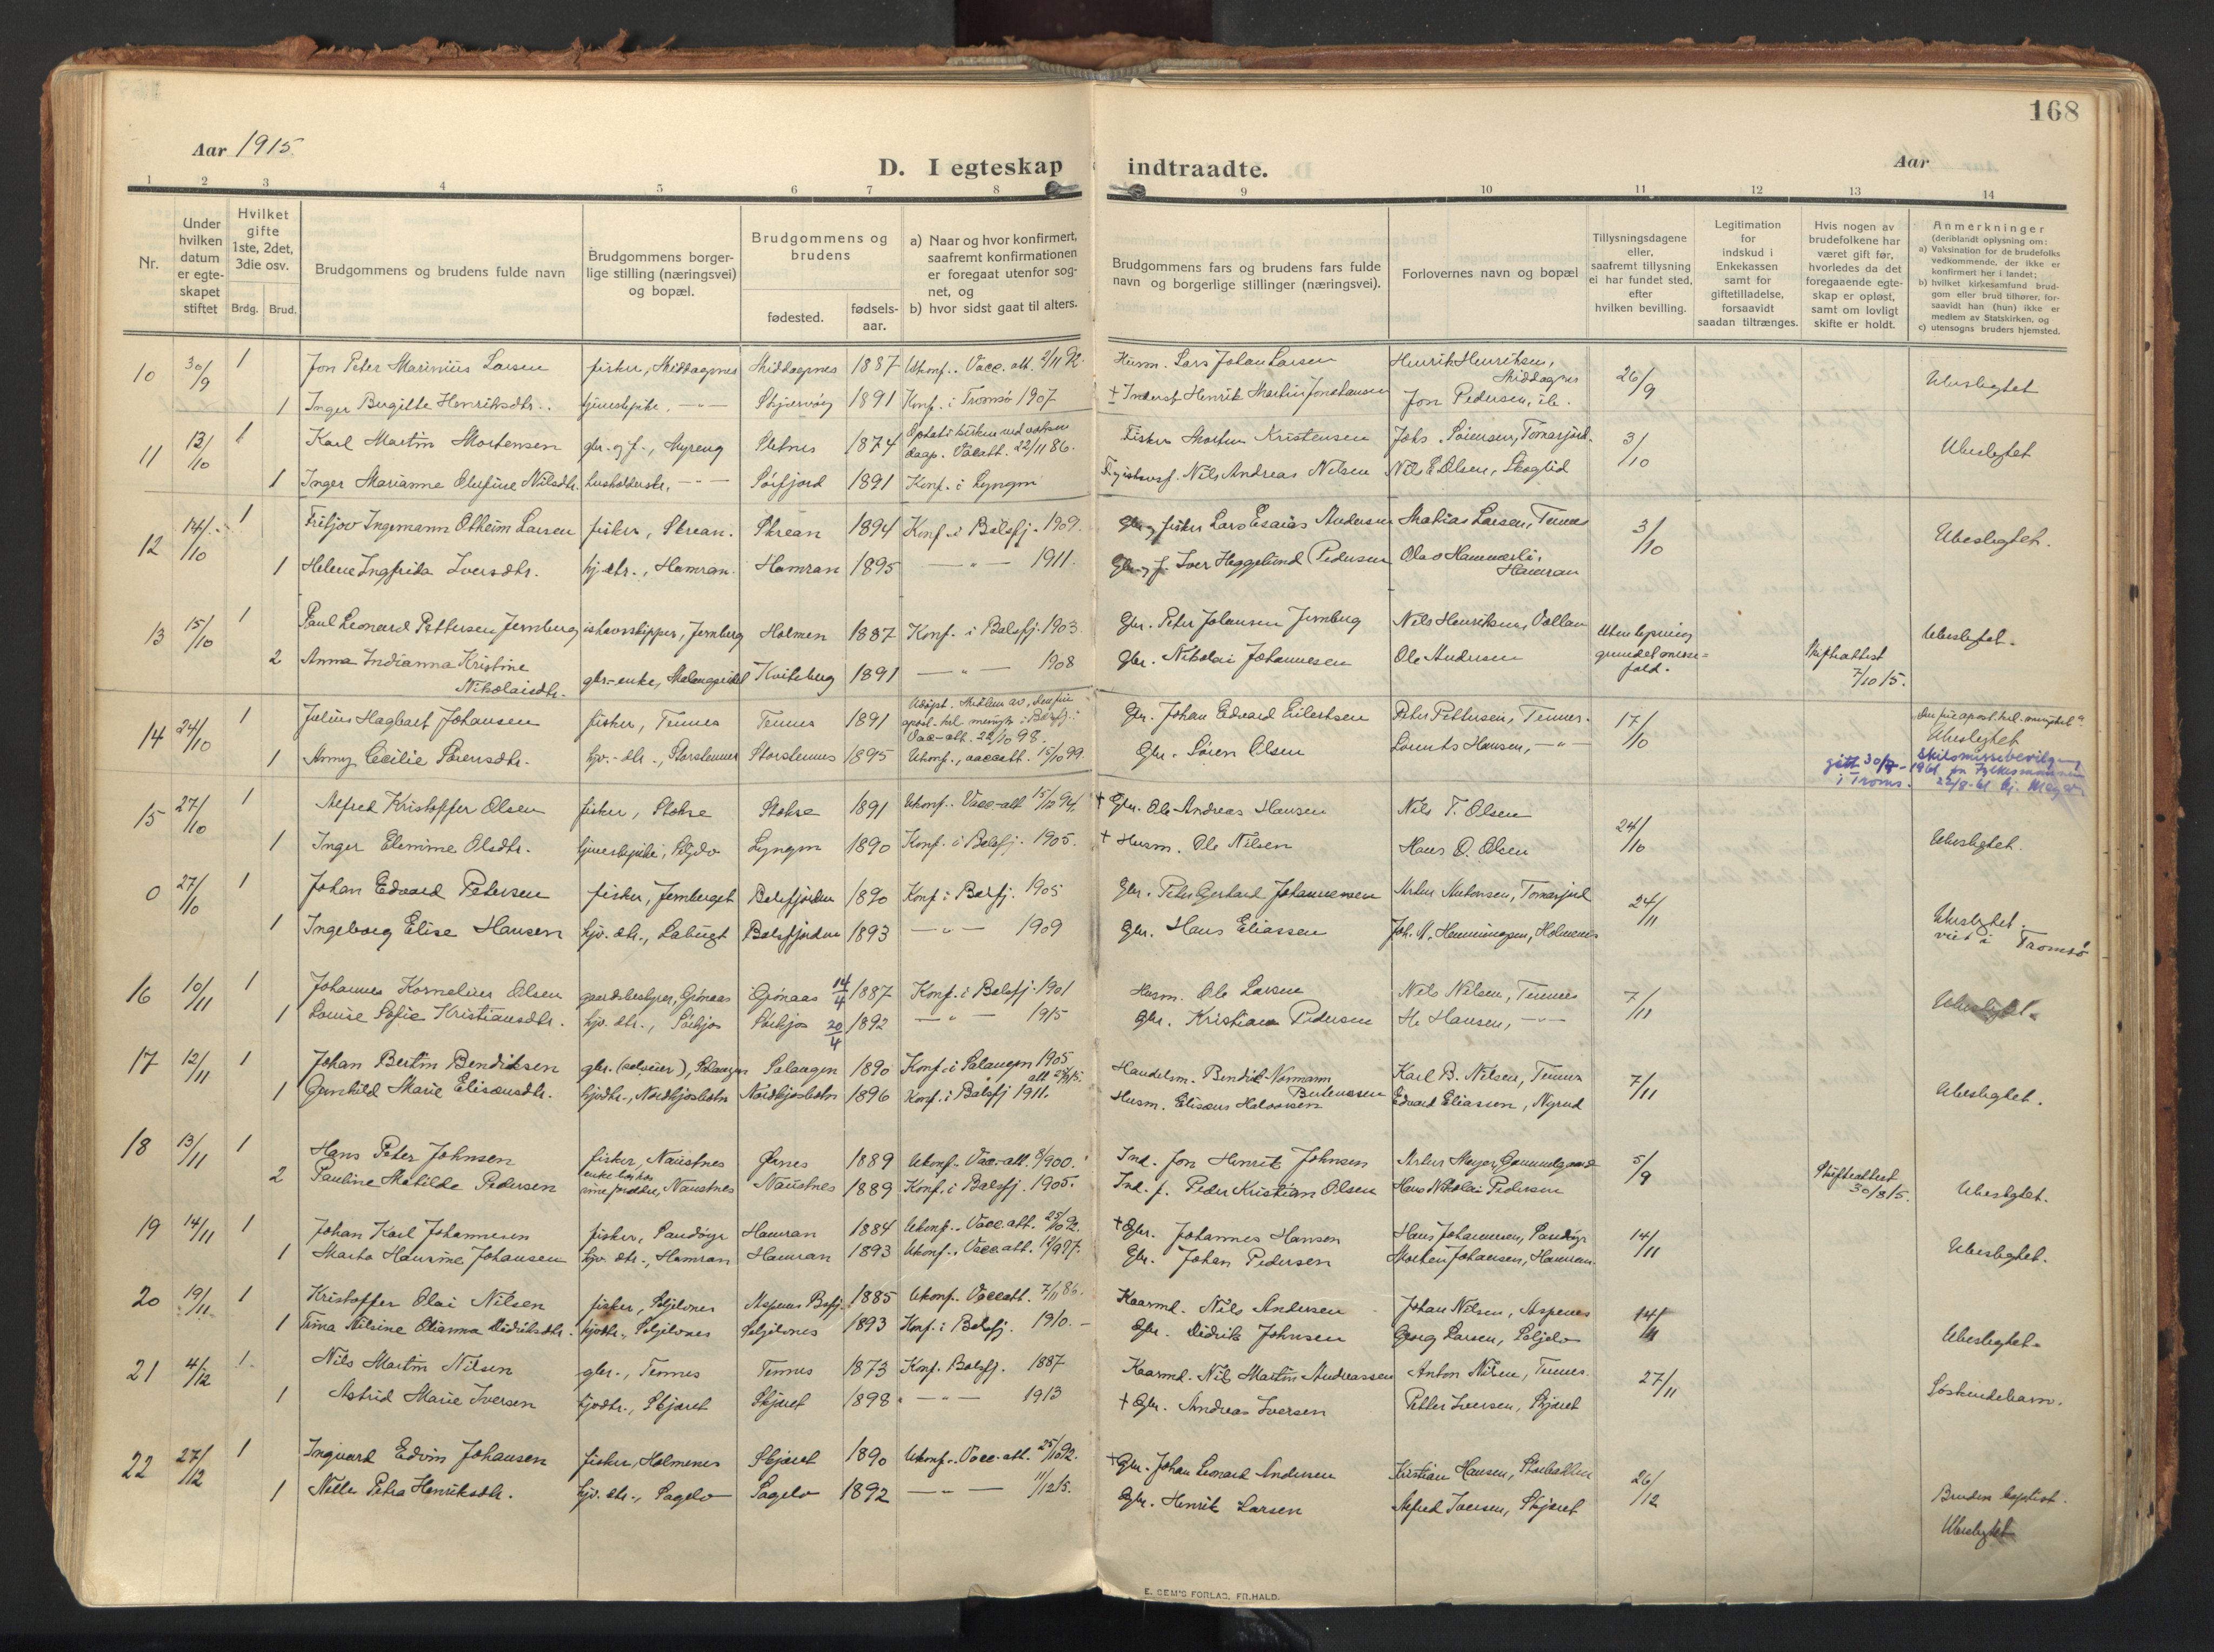 168
Aar 1915.
D. I egteskap indtraadte.
Aar
1 2 3 4 5 6 7 8 9 10 11 12 13 14
Nr.
Under hvilken datum er egteskapet stiftet
Hvilket gifte 1ste, 2det, 3die osv.
Brdg. Brud.
Brudgommens og brudens fulde navn
Brudgommens borgerlige stilling (næringsvei) og bopæl.
Brudgommens og brudens
fødested. fødselsaar.
a) Naar og hvor konfirmert, saafremt konfirmationen er foregaat utenfor sognet, og
b) hvor sidst gaat til alters.
Brudgommens fars og brudens fars fulde navn og borgerlige stillinger (næringsvei).
Forlovernes navn og bopæl
Tillysningsdagene eller, saafremt tillysning ei har fundet sted, efter hvilken bevilling.
Legitimation for indskud i Enkekassen samt for giftetilladelse, forsaavidt saadan tiltrænges.
Hvis nogen av brudefolkene har været gift før, hvorledes da det foregaaende egteskap er opløst, samt om lovligt skifte er holdt.
Anmerkninger
(deriblandt oplysning om:
a) Vaksination for de brudefolks vedkommende, der ikke er konfirmert her i landet;
b) hvilket kirkesamfund brudgom eller brud tilhører, forsaavidt han (hun) ikke er medlem av Statskirken, og
c) utensogns bruders hjemsted.
10 30/9 1 Jon Peter Marinius Larsen fisker, Middagsnes Middagsnes 1887 Ukonf. Vacc. att. 2/11 92. Husm. Lars Johan Larsen Henrik Henriksen, Middagsnes 26/9 Ubeslegtet
1 Inger Birgitte Henriksdtr. tjenestepike, -"- Skjærvøy 1891 Konf. i Tromsø 1907 + Inderst Henrik Martin Jonahansen Jon Pedersen, ib.
11 13/10 1 Karl Martin Mortensen gbr. og f., Myreng Sletnes 1874 Vacatt. 22/11 86. Fisker Morten Kristensen Johs. Sørensen, Tomasjord 3/10 Ubeslegtet
1 Inger Marianne Olufine Nilsdtr. husholderske, -"- Sørfjord 1891 Konf. i Lyngen Nils Andreas Nilsen Nils E. Olsen, Skoglid
12 14/10 1 Fritjov Ingemann Otheim Larsen fisker, Skrean. Skrean 1894 Konf. i Balsfj. 1909. Gbr. og fisker Lars Esaias Andersen Mathias Larsen, Tennes 3/10 Ubeslegtet.
1 Helene Ingfrida Iversdtr. hj. dtr., Hamran. Hamran 1895 -"- 1911. Gbr. og f. Iver Heggelund Pedersen Olav Hammerli, Hamran
13 15/10 1 Paul Leonard Pettersen Jernberg ishavsskipper, Jernberg Holmen 1887 Konf. i Balsfj. 1903. Gbr. Peter Johansen Jernberg Nils Henriksen, Vollan Uten lysning grundet Ubeslegtet.
2 Anna Indianna Kristine Nikolaisdtr. gbr.-enke, Malangseidet Kvitberg 1891 -"- 1908 Gbr. Nikolai Johannesen Ole Andersen Skifteattest 7/10 15.
14 24/10 1 Julius Hagbart Johansen fisker, Tennes Tennes 1891 Vacc-att. 22/10 98. Gbr. Johan Edvard Eilertsen Peter Pettersen, Tennes. 17/10 Ubeslegtet
1 Anny Cecilie Sørensdtr. hjv.-dtr., Storstennes Storstennes 1895 Ukonf., vaccatt. 15/10 99. Gbr. Søren Olsen Lorents Hansen, -"-
Skilsmissebevilgning
1961 fra Fylkesmannen i Troms.
15 27/10 1 Alfred Kristoffer Olsen fisker, Stokse Stokse 1891 Ukonf. Vacc-att 15/10 94. + Gbr. Ole Andreas Hansen Nils T. Olsen 24/10 Ubeslegtet.
1 Inger Elemine Olsdtr. tjenestepike, Seljelv Lyngen 1890 Konf. i Balsfj. 1905. + Husm. Ole Nilsen Hans O. Olsen
0 27/10 1 Johan Edvard Petersen fisker, Jernberget Balsfjorden 1890 Konf. i Balsfj. 1905 Gbr. Peter Gerhard Johannessen Artur Antonsen, Tomasjord 24/11 Ubeslegtet.
1 Ingeborg Elise Hansen hjv. dtr., Labugt Balsfjorden 1893 -"- 1909 Gbr. Hans Eliassen Joh. A. Henningsen, Holmenes viet i Tromsø
16 10/11 1 Johannes Kornelius Olsen gaardsbestyrer, Grønaas Grønaas 14/4 1887 Konf. i Balsfj. 1901 Husm. Ole Larsen Nils Nilsen, Tennes 7/11 Ubeslegtet.
1 Louise Sofie Kristiansdtr. hjv. dtr., Sørkjos Sørkjos 20/4 1892 -"- 1915 Gbr. Kristian Pedersen H. Hansen, -"-
17 12/11 1 Johan Bertin Bendiksen gbr. (selveier), Salangen Salangen 1890 Konf. i Salangen 1905 Handelsm. Bendik Normann Bertenssen Karl B. Nilsen, Tennes 7/11 Ubeslegtet.
1 Gunhild Marie Elisæusdtr. hjvdtr., Nordkjosbotn Nordkjosbotn 1896 Konf. i Balsfj 1911. Husm. Elisæus Halvorsen Edvard Eliassen, Nyrud
18 13/11 1 Hans Peter Johnsen fisker, Naustnes Ørnes 1889 Ukonf. Vac.-att. 8/900. Ind. Jon Henrik Johnsen Artur Meyer, Gammelgaard 5/9 Ubeslegtet.
2 Pauline Matilde Pedersen enke hos sine forældre, Naustnes Naustnes 1889 Konf. i Balsfj. 1905. Ind. f. Peder Kristian Olsen Hans Nikolai Pedersen Skifteattest 30/8 15.
19 14/11 1 Johan Karl Johannesen fisker, Sandøyr Hamran 1884 Ukonf. Vacc. att. 25/10 92. + Gbr. Johannes Hansen Hans Johannesen, Sandøyr 14/11 Ubeslegtet.
1 Marta Hansine Johansen hjv. dtr., Hamran Hamran 1893 Ukonf. Vacc. att. Gbr. Johan Pedersen Morten Johansen, Hamran.
20 19/11 1 Kristoffer Olai Nilsen fisker, Seljelvnes Aspenes Bafj. 1885 Ukonf. Vaccatt. 7/11 86. Kaarmd. Nils Andersen Johan Nilsen, Aspenes 14/11 Ubeslegtet.
1 Trina Nilsine Olianna Didriksdtr. hjvdtr., Seljelvnes Seljelvnes 1893 Konf. i Balsfj. 1910. Gbr. Didrik Johnsen Georg Larsen, Seljelv
21 4/12 1 Nils Martin Nilsen gbr., Tennes Tennes 1873 Konf. Balsfj. 1887 Kaarmd. Nils Martin Andreassen Anton Nilsen, Tennes. 27/11 Søskendebarn.
1 Astrid Marie Iversen hjvdtr., Skjæret Skjæret 1898 -"- 1913 + Gbr. Andreas Iversen Petter Iversen, Skjæret
22 27/12 1 Ingvard Edvin Johansen fisker, Holmenes Skjæret 1890 Ukonf. Vacc-att. 25/10 92. + Gbr. Johan Leonard Andersen Kristian Hansen, Storbakken 26/12 Bruden baptist.
1 Nelly Petra Henriksdtr. hjv. dtr., Sagelv Sagelv 1892 -"- 11/12 15. Gbr. Henrik Larsen Alfred Iversen, Skjæret Ubeslegtet
E. SEM'S FORLAG, FR.HALD.